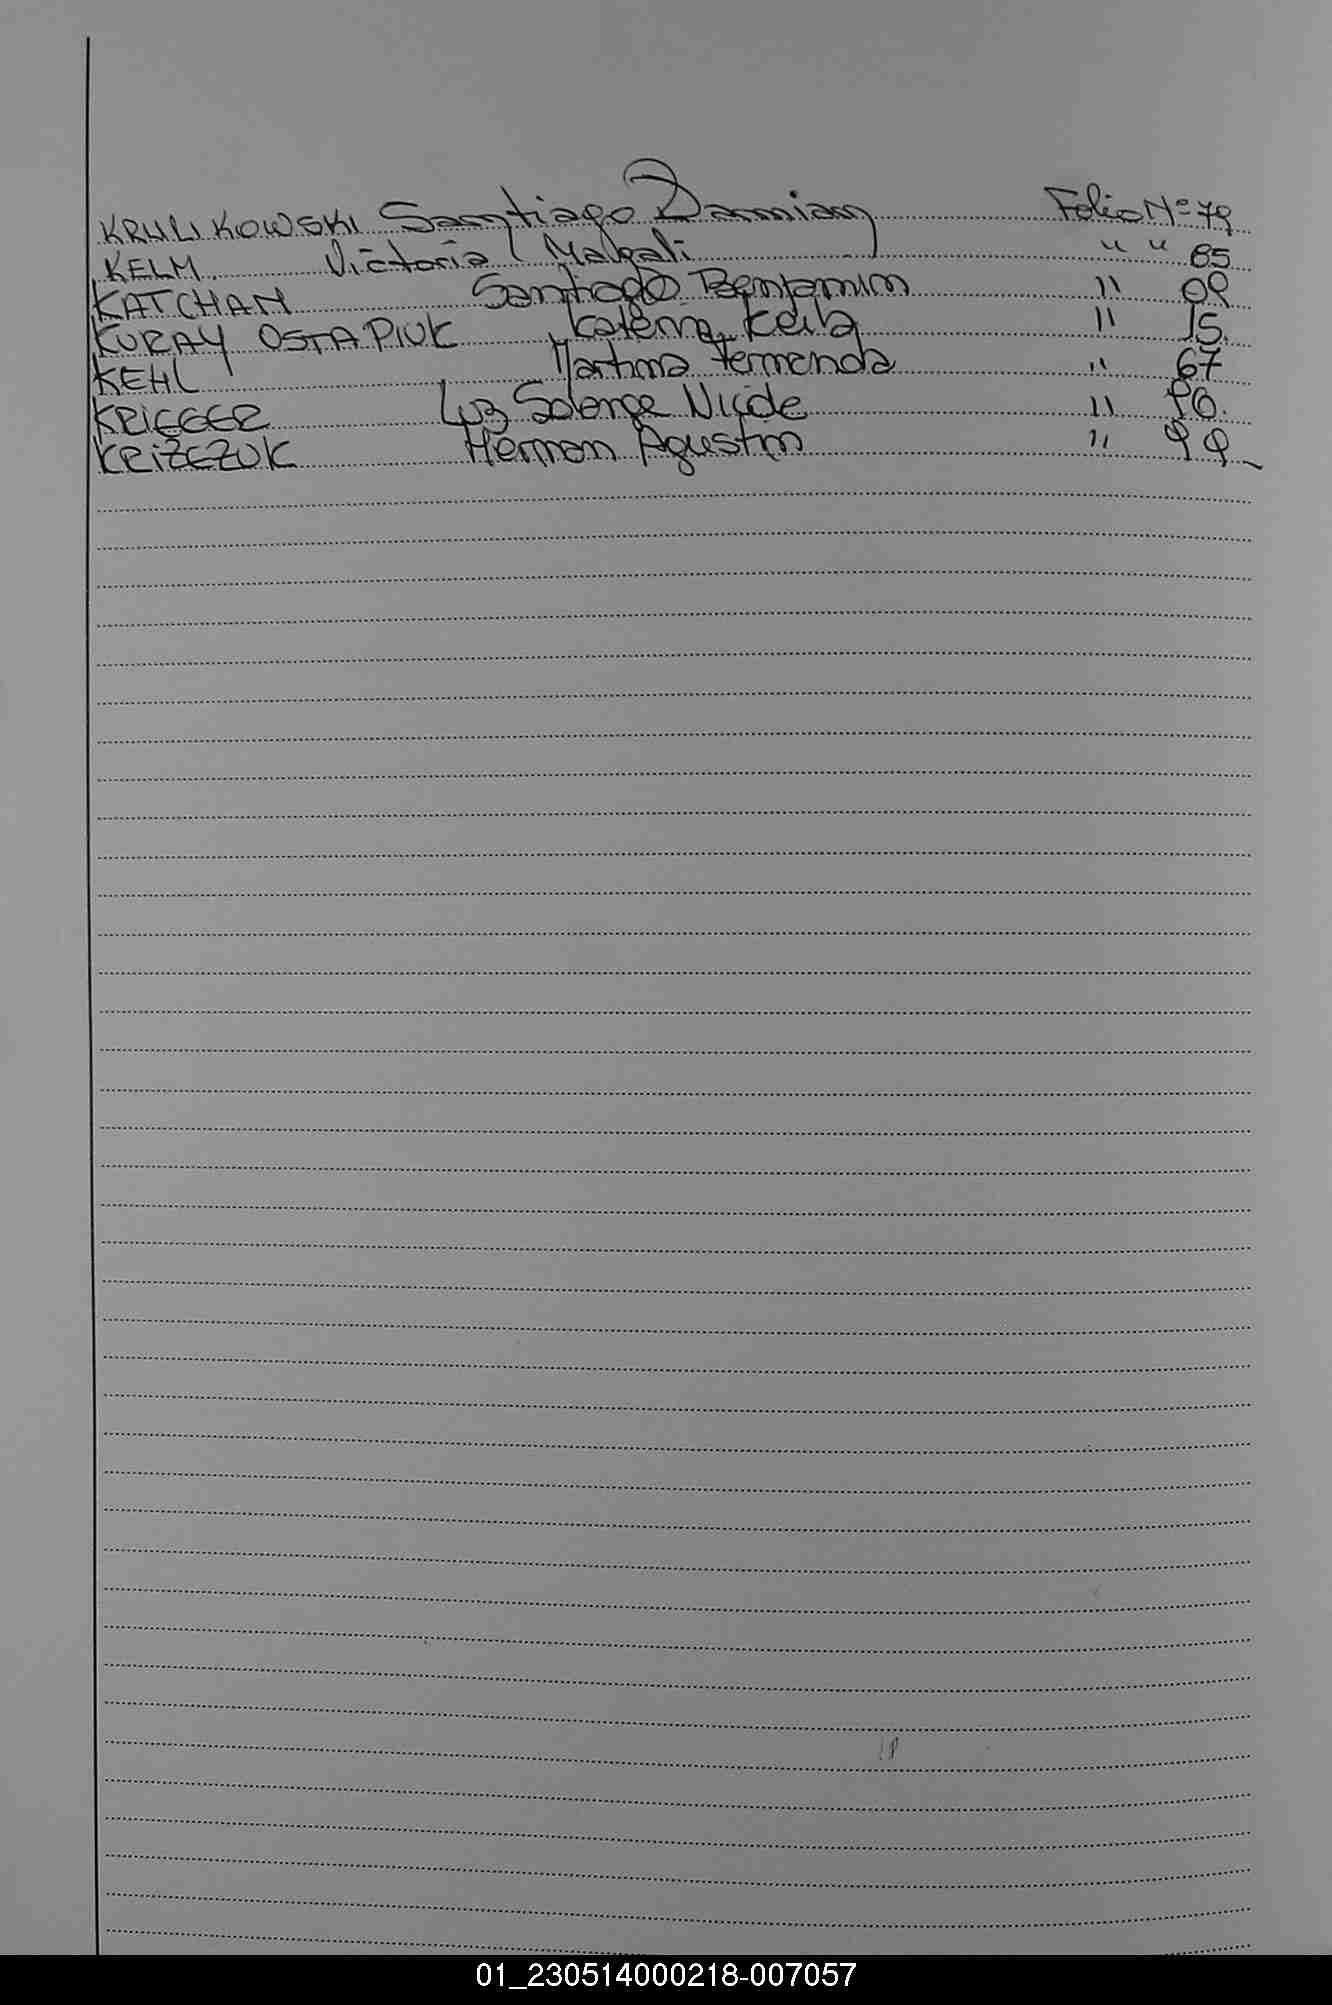 KRULIKOWSKI Santiago Damian Folio Nº 79
KELM Victoria Magali " " 85
KATCHAN Santiago Benjamin " 09
KURAY OSTAPIUK Katerina Keila " 15
KEHL Martina Fernanda " 67
KRIEGER Luz Solange Nicole " 90
KRIZEZUK Hernan Agustin " 99
01_230514000218-007057